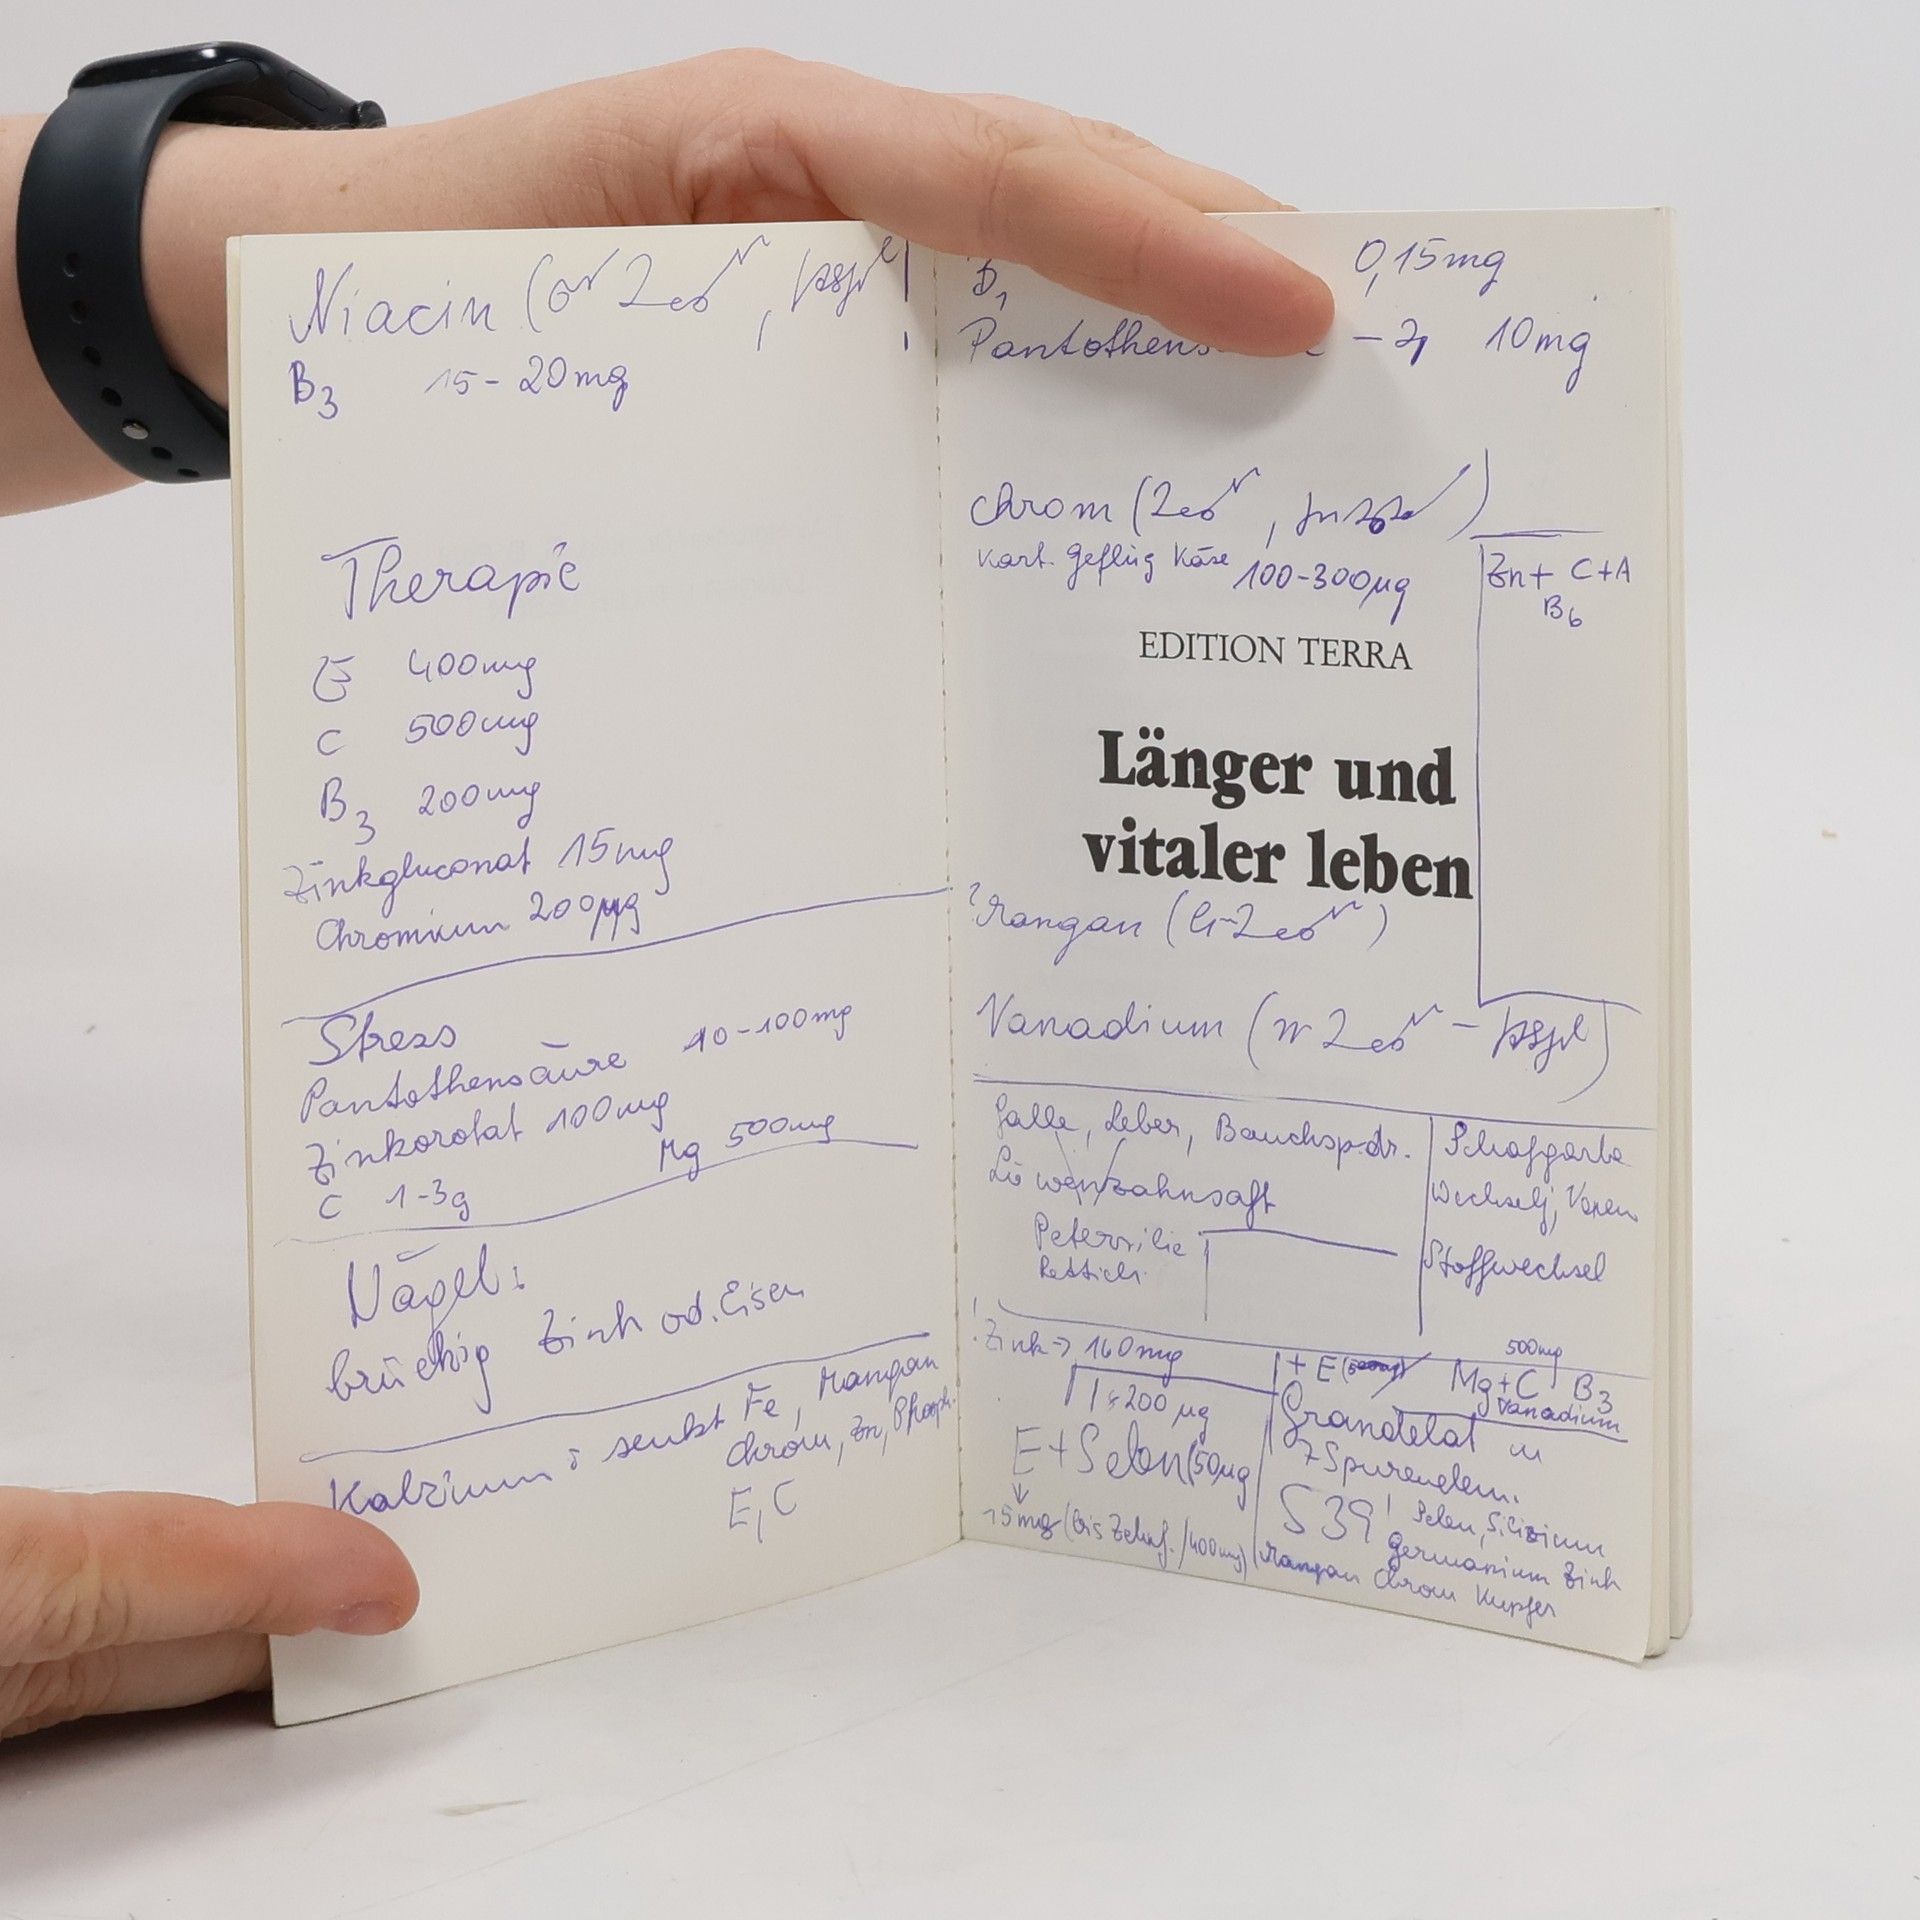 Niacin
B3 15-20mg
Therapie
E 400mg
C 500mg
B3 200mg
Zinkgluconat 15mg
Chromium 200µg
Stress
Pantothensäure 10-100mg
Zinkorotat 100mg
Mg 500mg
C 1-3g
Nägel:
brüchig Zink od. Eisen
Kalzium: senkt Fe, Mangan
Chrom, Zn, Phosph.
E, C
B1 0,15mg
10mg
Chrom
Kart. Geflüg Käse 100-300µg
Zn+ C+A
B6
EDITION TERRA
Länger und
vitaler leben
Mangan
Vanadium
Galle, Leber, Bauchsp.dr.
Löwenzahnsaft
Petersilie
Rettich
Schafgarbe
Wechselj, Venen
Stoffwechsel
! Zink → 160mg
200 µg
E+Selen (50µg
15mg
+ E
500mg
Mg+C B3
Vanadium
Grandelat
7 Spurenelem.
S39! Selen, Silizium
Germanium Zink
Mangan Chrom Kupfer